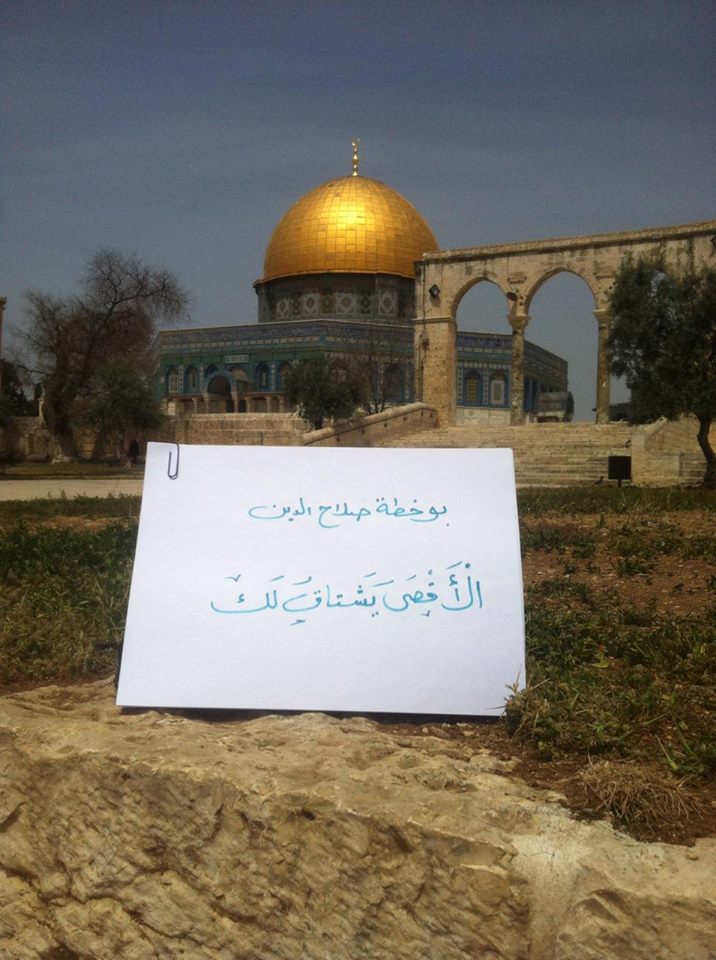 بوخطة صلاح الدين
الْأَقْصَى يَشْتاقُ لَكَ